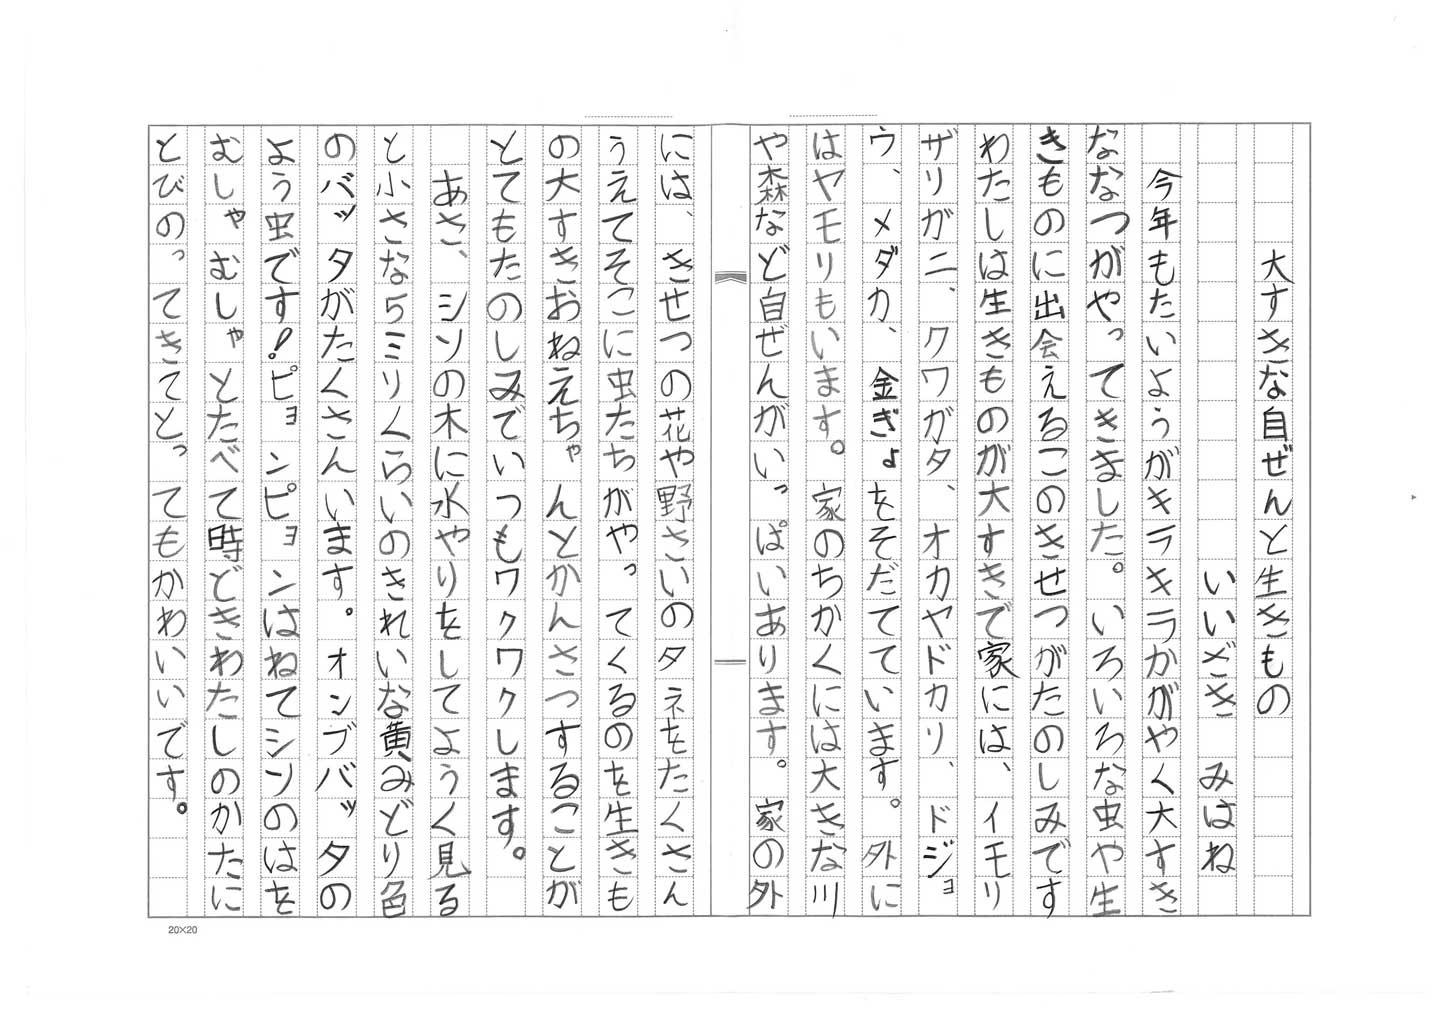 大すきな自ぜんと生きもの
いいざき　みはね
今年もたいようがキラキラかがやく大すき
ななつがやってきました。いろいろな虫や生
きものに出会えるこのきせつがたのしみです
わたしは生きものが大すきで家には、イモリ
ザリガニ、クワガタ、オカヤドカリ、ドジョ
ウ、メダカ、金ぎょをそだてています。外に
はヤモリもいます。家のちかくには大きな川
や森など自ぜんがいっぱいあります。家の外
には、きせつの花や野さいのタネをたくさん
うえてそこに虫たちがやってくるのを生きも
の大すきおねえちゃんとかんさつすることが
とてもたのしみでいつもワクワクします。
あさ、シソの木に水やりをしてようく見る
と小さな5ミリくらいのきれいな黄みどり色
のバッタがたくさんいます。オンブバッタの
よう虫です！ピョンピョンはねてシソのはを
むしゃむしゃとたべて時どきわたしのかたに
とびのってきてとってもかわいいです。
20×20